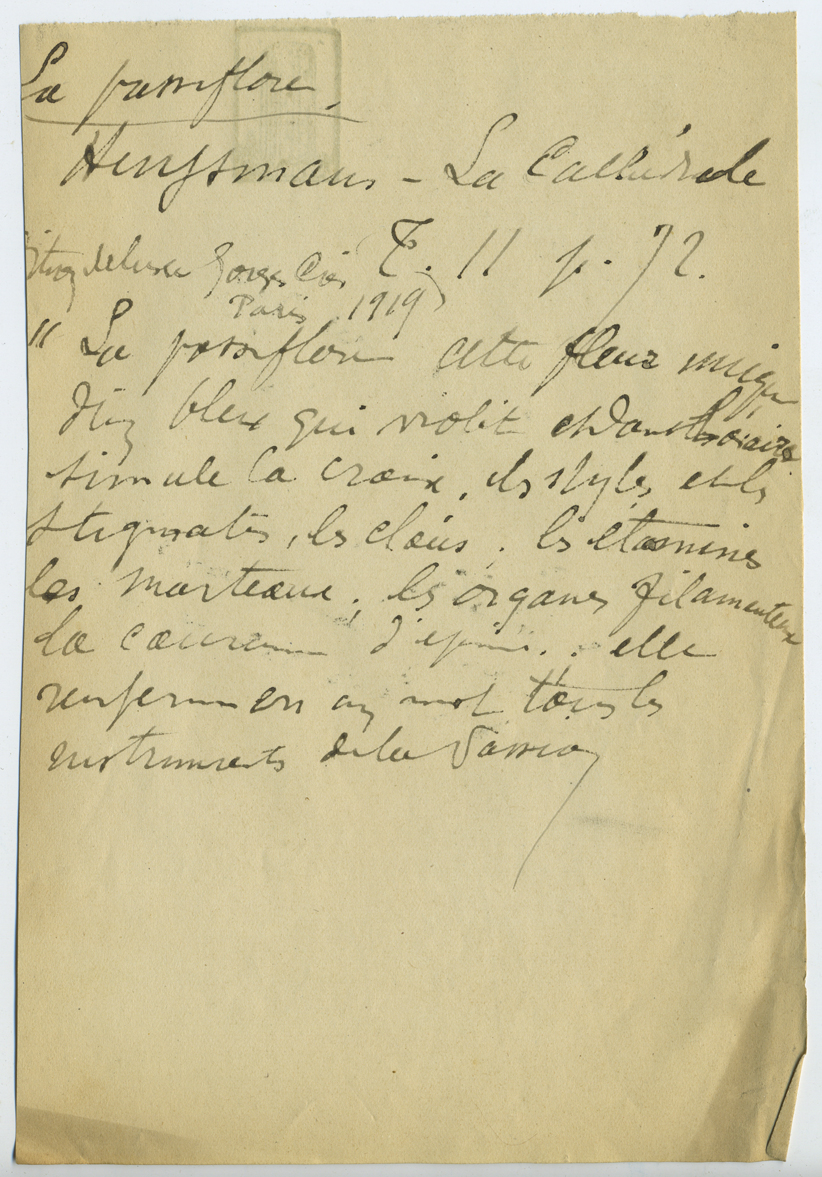 La passiflore
Heuysmans - La Cathédrale
T. 11 p. 72.
de luxe Georges Crès
Paris 1919)
" La passiflore cette fleur unique
d'un bleu qui violit et dont l'ovaire
simule la croix, les styles et les
stigmates, les clous, les étamines
les marteaux, les organes filamenteux
la couronne d'épines.. elle
renferme en un mot tous les
instruments de la Passion